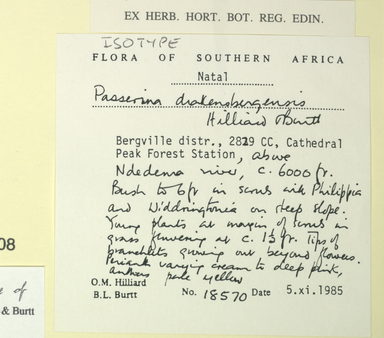 EX HERB. HORT. BOT. REG. EDIN.
ISOTYPE
FLORA OF SOUTHERN AFRICA
Natal
Passerina drakensbergensis
Hilliard & Burtt
Bergville distr., 2829 CC, Cathedral
Peak Forest Station, above
Ndedema river, c. 6000 ft.
Bush to 6 ft in scrub with Philippia
and Widdringtonia on steep slope.
Young plants at margin of scrub in
grass flowering at c. 1½ ft. Tips of
branchlets growing out beyond flowers.
Perianth varying cream to deep pink,
anthers pale yellow
O.M. Hilliard
B.L. Burtt No. 18570 Date 5.xi.1985
08
e of
& Burtt